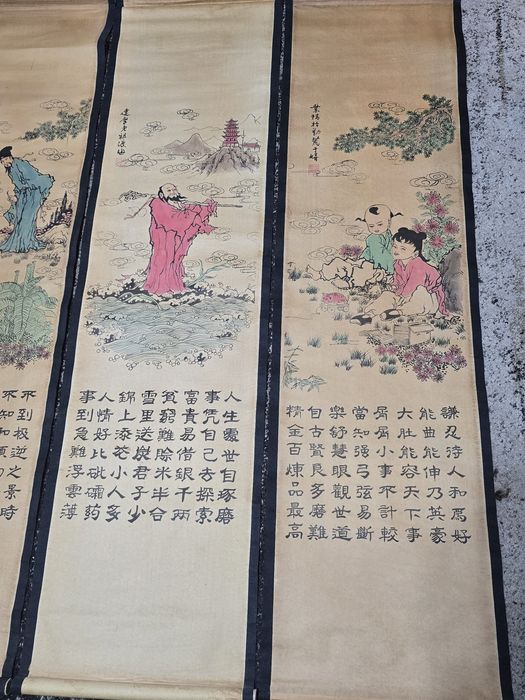 業精於勤荒于嬉
謙忍待人和爲好
能曲能伸乃英豪
大肚能容天下事
屑屑小事不計較
當知强弓弦易斷
樂舒慧眼觀世道
自古賢良多磨難
精金百煉品最高
達摩老祖渡
人生處世自琢磨
事凭自己去探索
富貴易借銀千兩
貧窮難賒米半合
雪里送炭君子少
錦上添花小人多
人情好比
事到急難浮雲薄
不到极逆之景時
不知和